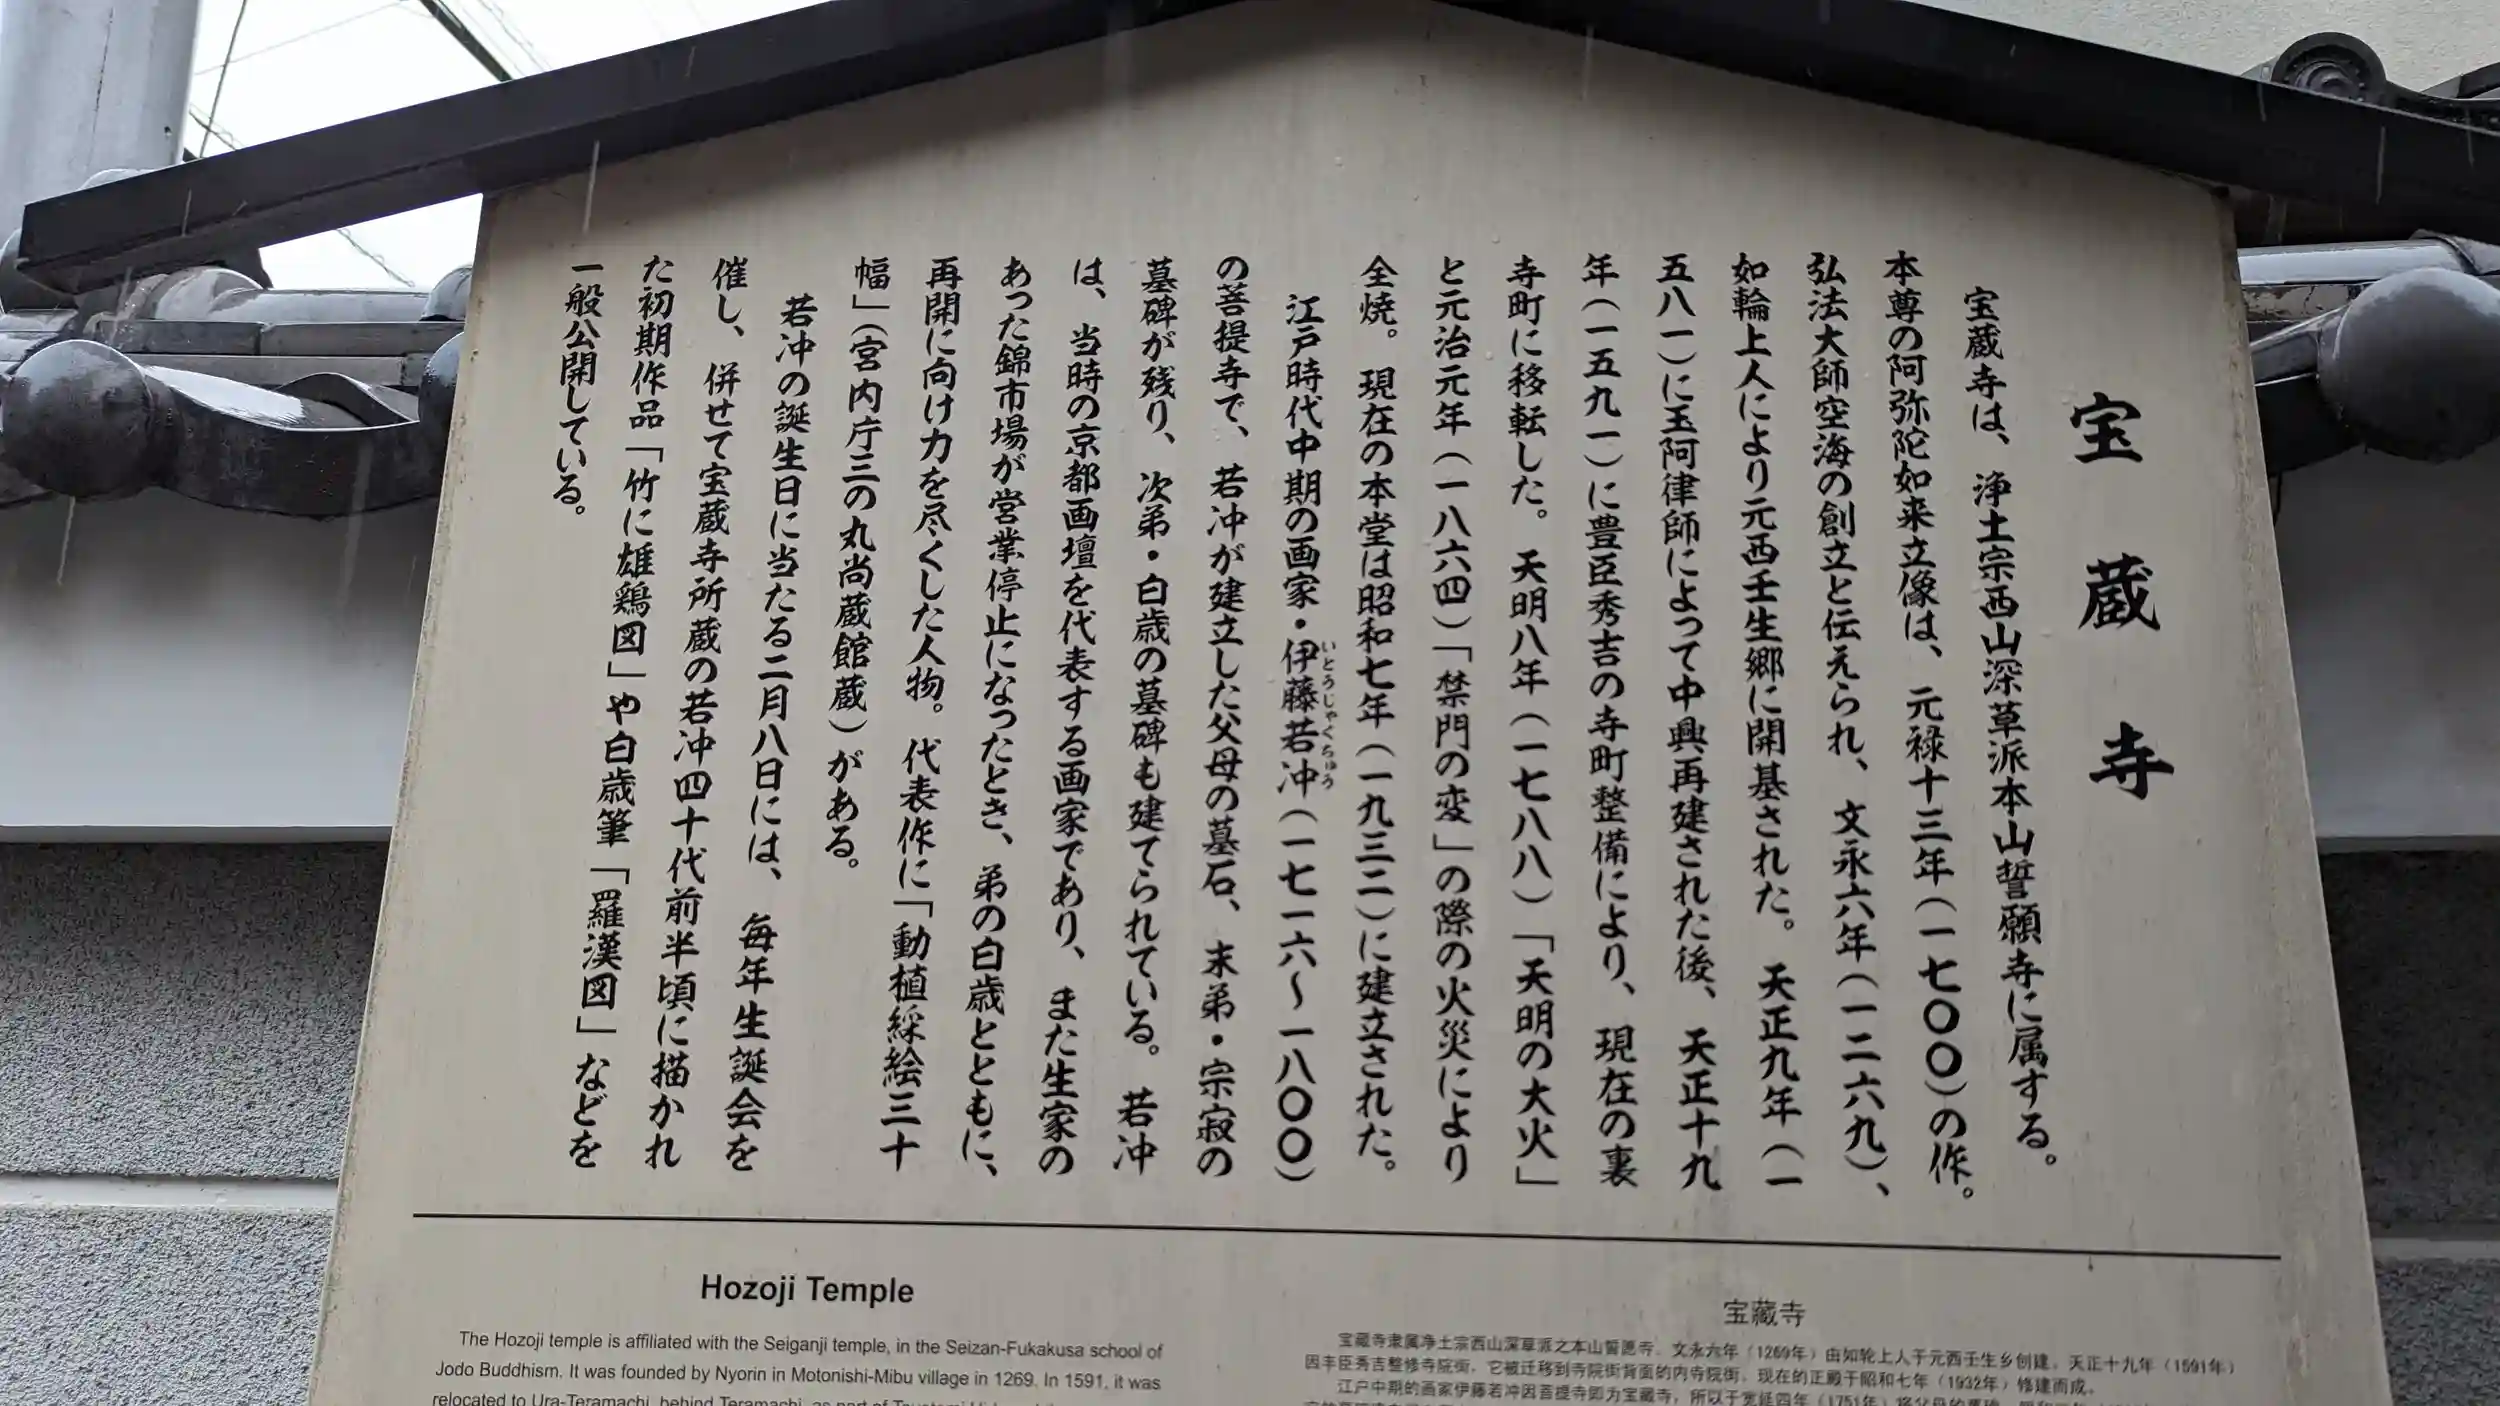 宝蔵寺
宝蔵寺は、浄土宗西山深草派本山誓願寺に属する。
本尊の阿弥陀如来立像は、元禄十三年（一七〇〇）の作。
弘法大師空海の創立と伝えられ、文永六年（一二六九）、
如輪上人により元西壬生郷に開基された。天正九年（一
五八一）に玉阿律師によって中興再建された後、天正十九
年（一五九一）に豊臣秀吉の寺町整備により、現在の裏
寺町に移転した。天明八年（一七八八）「天明の大火」
と元治元年（一八六四）「禁門の変」の際の火災により
全焼。現在の本堂は昭和七年（一九三二）に建立された。
江戸時代中期の画家・伊藤若冲（一七一六〜一八〇〇）
いとうじゃくちゅう
の菩提寺で、若冲が建立した父母の墓石、末弟・宗寂の
墓碑が残り、次弟・白歳の墓碑も建てられている。若冲
は、当時の京都画壇を代表する画家であり、また生家の
あった錦市場が営業停止になったとき、弟の白歳とともに、
再開に向け力を尽くした人物。代表作に「動植綵絵三十
幅」（宮内庁三の丸尚蔵館蔵）がある。
若冲の誕生日に当たる二月八日には、毎年生誕会を
催し、併せて宝蔵寺所蔵の若冲四十代前半頃に描かれ
た初期作品「竹に雄鶏図」や白歳筆「羅漢図」などを
一般公開している。
Hozoji Temple
The Hozoji temple is affiliated with the Seiganji temple, in the Seizan-Fukakusa school of
Jodo Buddhism. It was founded by Nyorin in Motonishi-Mibu village in 1269. In 1591, it was
relocated to Ura-Teramachi, behind Teramachi, as part of
宝藏寺
宝藏寺隶属净土宗西山深草派之本山誓愿寺。文永六年（1269年）由如轮上人于元西壬生乡创建。天正十九年（1591年）
因丰臣秀吉整修寺院街，它被迁移到寺院街背面的内寺院街。现在的正殿于昭和七年（1932年）修建而成。
江户中期的画家伊藤若冲因菩提寺即为宝藏寺，所以于宽延四年（1751年）将父母的